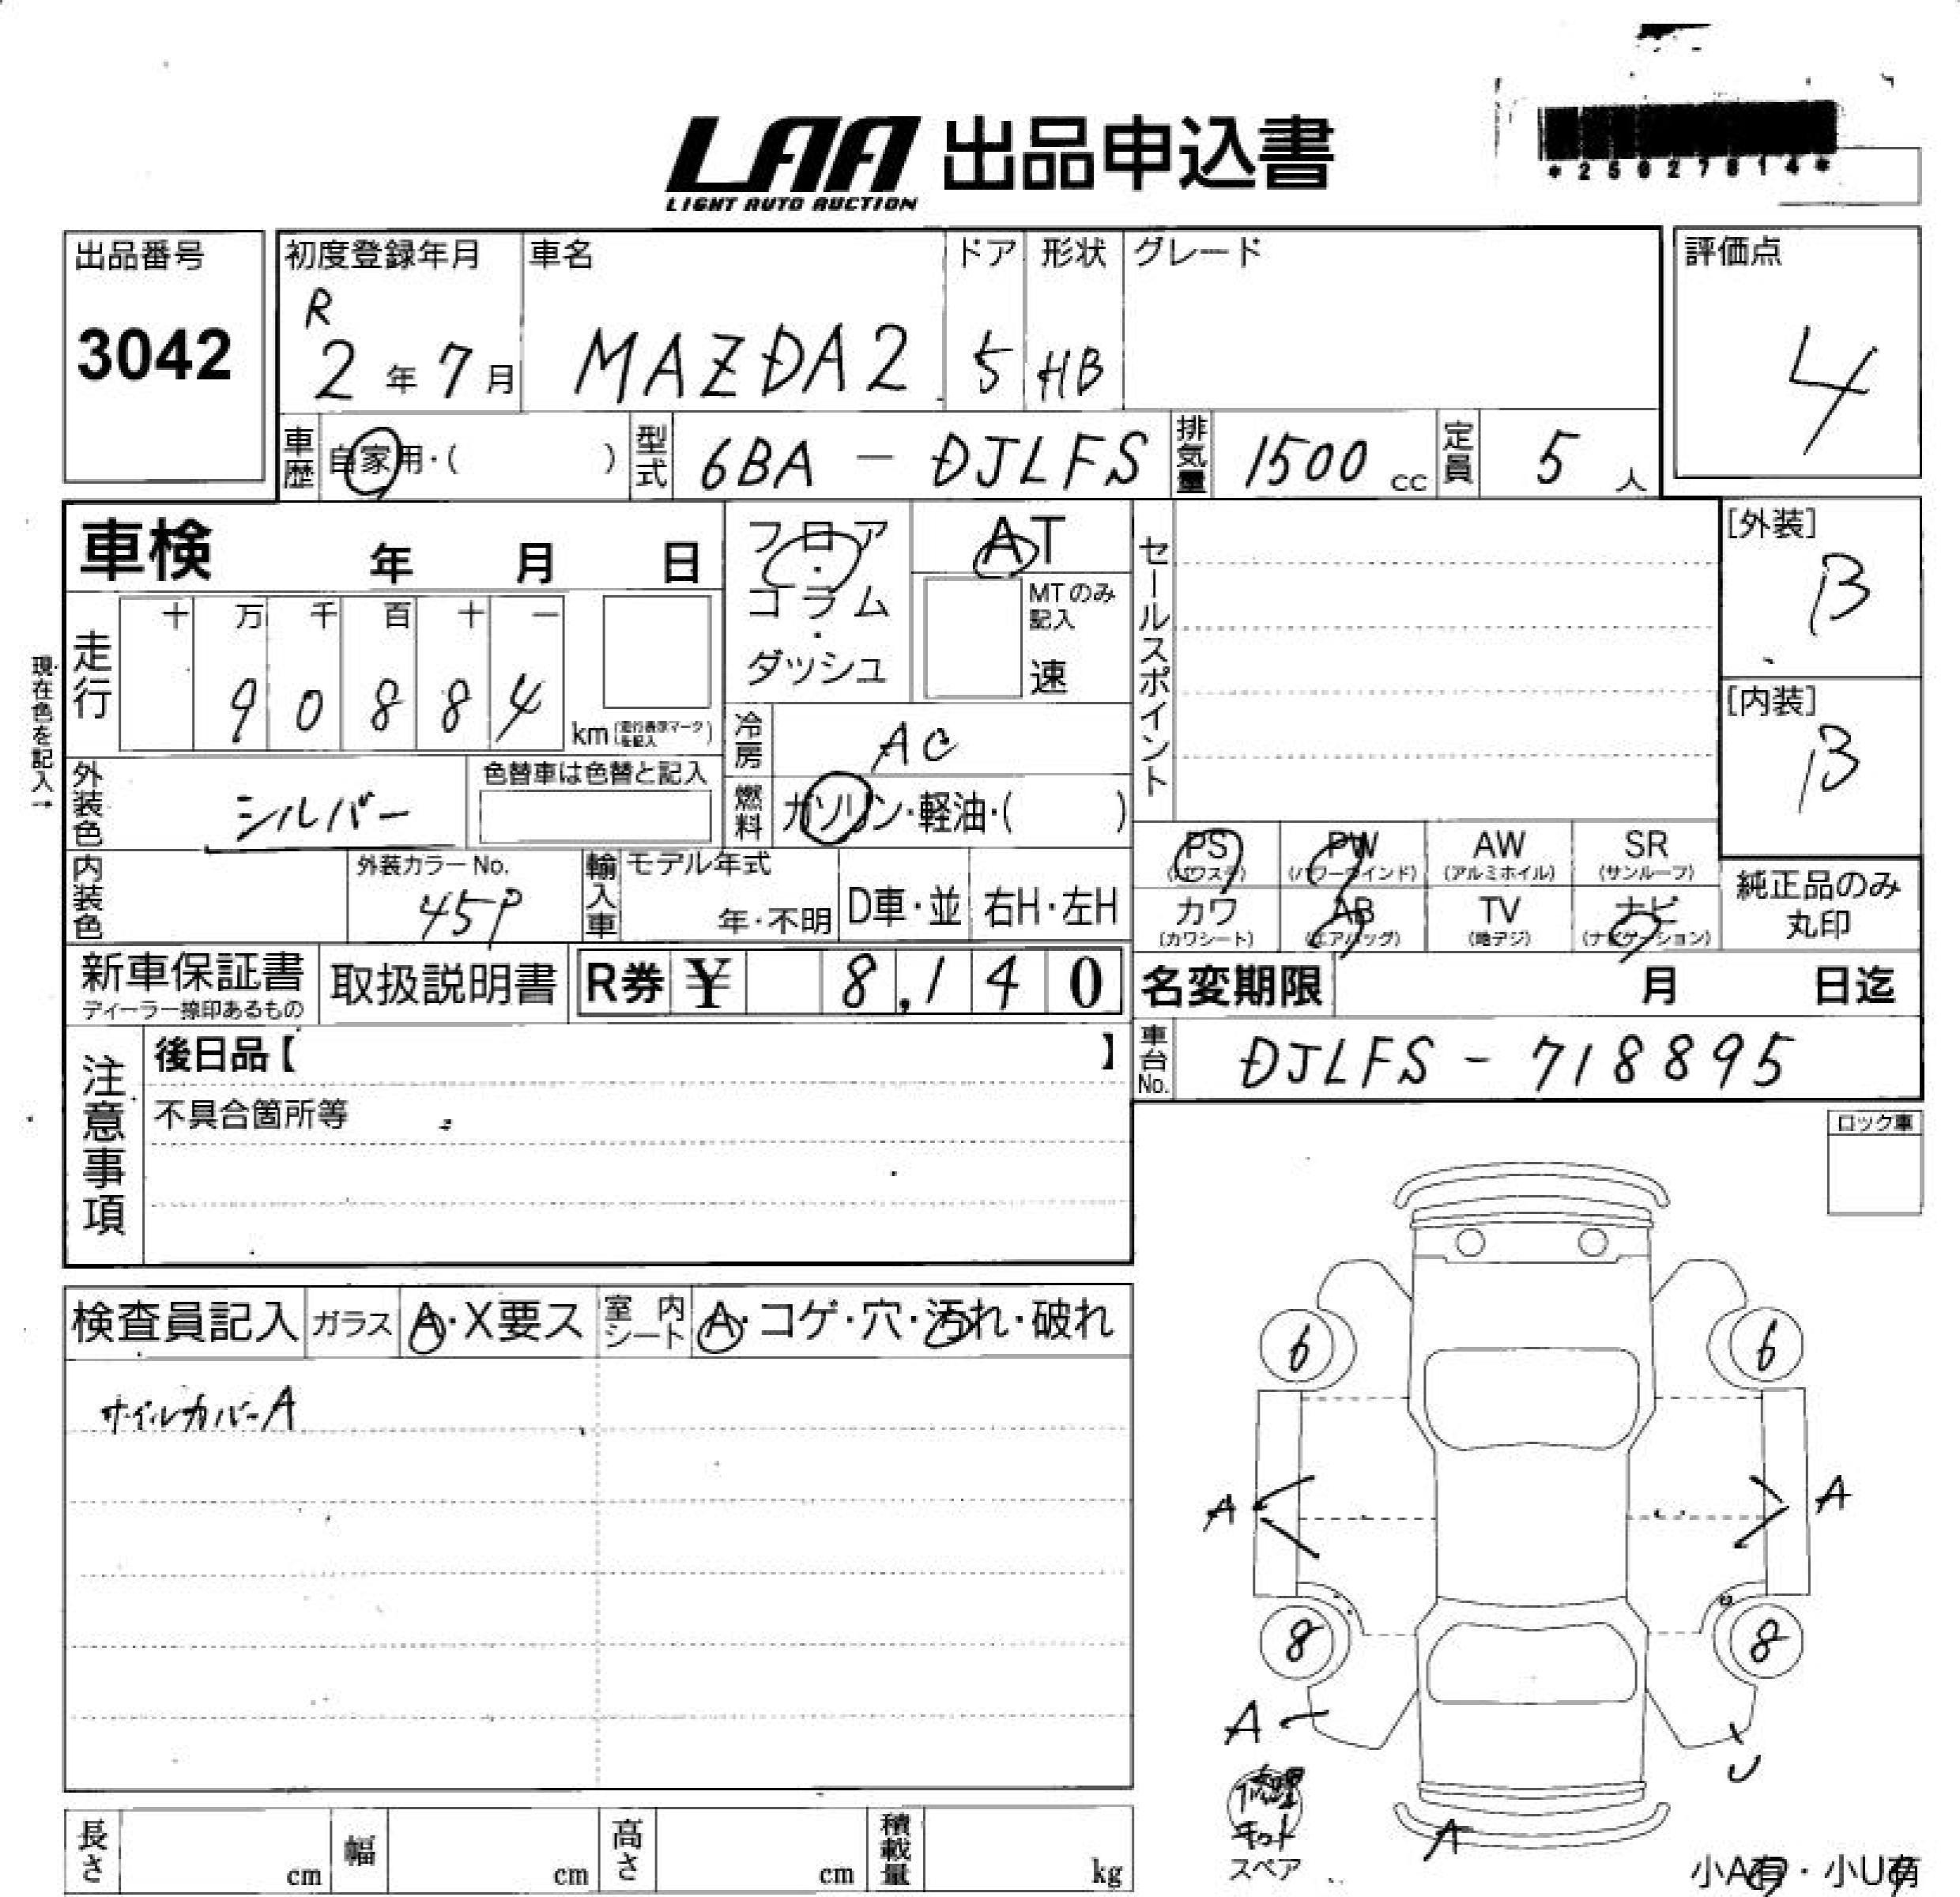 LAA 出品申込書
LIGHT AUTO AUCTION
出品番号
3042
初度登録年月
R
2年7月
車名
MAZDA2
ドア
5
形状
HB
グレード
評価点
4
車歴 自家用・( )
型式 6BA - DJLFS
排気量 1500 cc
定員 5 人
車検 年 月 日
フロア・コラム・ダッシュ
AT
MTのみ記入
速
セールスポイント
[外装]
B
[内装]
B
現在色を記入→
走行
十 万 千 百 十 一
9 0 8 8 4
km (走行表示マークを記入)
冷房 AC
外装色 シルバー
色替車は色替と記入
燃料 ガソリン・軽油・( )
PS (パワステ)
PW (パワーウインド)
AW (アルミホイル)
SR (サンルーフ)
内装色
外装カラーNo.
45P
輸入車 モデル年式
年・不明
D車・並
右H・左H
カワ (カワシート)
AB (エアバッグ)
TV (地デジ)
ナビ (ナビゲーション)
純正品のみ
丸印
新車保証書
ディーラー捺印あるもの
取扱説明書
R券 ¥ 8,140
名変期限 月 日迄
注意事項
後日品【 】
不具合箇所等
車台No. DJLFS - 718895
ロック車
検査員記入
ガラス A・X要ス
室内シート A・コゲ・穴・汚れ・破れ
ホイルカバーA
6 6
A A
8 8
A U
修理
キット
スペア
A
小A有・小U有
長さ cm
幅 cm
高さ cm
積載量 kg